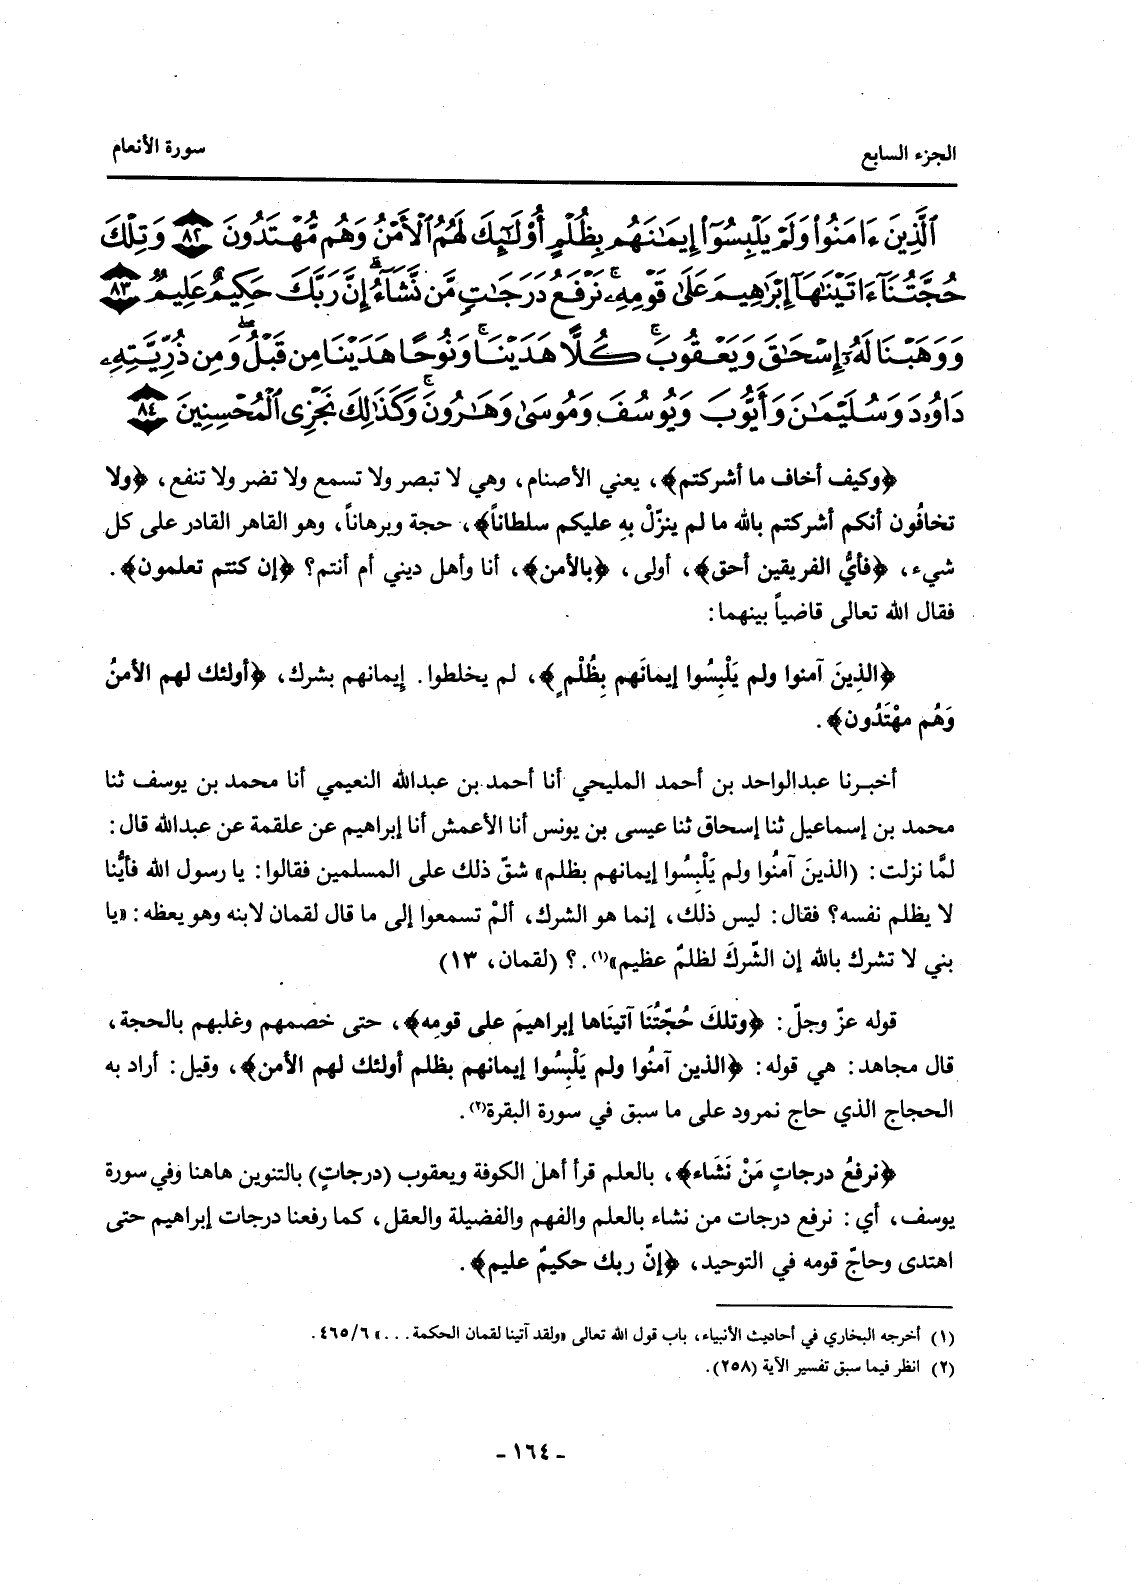 الجزء السابع
سورة الأنعام
ٱلَّذِينَ ءَامَنُوا۟ وَلَمْ يَلْبِسُوٓا۟ إِيمَـٰنَهُم بِظُلْمٍ أُو۟لَـٰٓئِكَ لَهُمُ ٱلْأَمْنُ وَهُم مُّهْتَدُونَ ٨٢ وَتِلْكَ
حُجَّتُنَآ ءَاتَيْنَـٰهَآ إِبْرَٰهِيمَ عَلَىٰ قَوْمِهِۦ ۚ نَرْفَعُ دَرَجَـٰتٍ مَّن نَّشَآءُ ۗ إِنَّ رَبَّكَ حَكِيمٌ عَلِيمٌ ٨٣
وَوَهَبْنَا لَهُۥٓ إِسْحَـٰقَ وَيَعْقُوبَ ۚ كُلًّا هَدَيْنَا ۚ وَنُوحًا هَدَيْنَا مِن قَبْلُ ۖ وَمِن ذُرِّيَّتِهِۦ
دَاوُۥدَ وَسُلَيْمَـٰنَ وَأَيُّوبَ وَيُوسُفَ وَمُوسَىٰ وَهَـٰرُونَ ۚ وَكَذَٰلِكَ نَجْزِى ٱلْمُحْسِنِينَ ٨٤
﴿وكيف أخاف ما أشركتم﴾، يعني الأصنام، وهي لا تبصر ولا تسمع ولا تضر ولا تنفع، ﴿ولا
تخافُون أنكم أشركتم بالله ما لم ينزّلْ بهِ عليكم سلطاناً﴾، حجة وبرهاناً، وهو القاهر القادر على كل
شيء، ﴿فأيُّ الفريقين أحق﴾، أولى، ﴿بالأمن﴾، أنا وأهل ديني أم أنتم؟ ﴿إن كنتم تعلمون﴾.
فقال الله تعالى قاضياً بينهما:
﴿الذِينَ آمنوا ولم يَلْبِسُوا إيمانَهم بِظُلْمٍ﴾، لم يخلطوا. إيمانهم بشرك، ﴿أولئك لهم الأمنُ
وَهُم مهْتَدُون﴾.
أخبرنا عبدالواحد بن أحمد المليحي أنا أحمد بن عبدالله النعيمي أنا محمد بن يوسف ثنا
محمد بن إسماعيل ثنا إسحاق ثنا عيسى بن يونس أنا الأعمش أنا إبراهيم عن علقمة عن عبدالله قال:
لمَّا نزلت: (الذينَ آمنُوا ولم يَلْبِسُوا إيمانهم بظلم» شقّ ذلك على المسلمين فقالوا: يا رسول الله فأيُّنا
لا يظلم نفسه؟ فقال: ليس ذلك، إنما هو الشرك، ألمْ تسمعوا إلى ما قال لقمان لابنه وهو يعظه: «يا
بني لا تشرك بالله إن الشّركَ لظلمٌ عظيم»(١).؟ (لقمان، ١٣)
قوله عزّ وجلّ: ﴿وتلكَ حُجّتُنَا آتينَاها إبراهيمَ على قومِه﴾، حتى خصمهم وغلبهم بالحجة،
قال مجاهد: هي قوله: ﴿الذين آمنُوا ولم يَلْبِسُوا إيمانهم بظلم أولئك لهم الأمن﴾، وقيل: أراد به
الحجاج الذي حاج نمرود على ما سبق في سورة البقرة(٢).
﴿نرفعُ درجاتٍ مَنْ نَشَاء﴾، بالعلم قرأ أهل الكوفة ويعقوب (درجاتٍ) بالتنوين هاهنا وفي سورة
يوسف، أي: نرفع درجات من نشاء بالعلم والفهم والفضيلة والعقل، كما رفعنا درجات إبراهيم حتى
اهتدى وحاجّ قومه في التوحيد، ﴿إنّ ربك حكيمٌ عليم﴾.
(١) أخرجه البخاري في أحاديث الأنبياء، باب قول الله تعالى «ولقد آتينا لقمان الحكمة...» ٤٦٥/٦.
(٢) انظر فيما سبق تفسير الآية (٢٥٨).
- ١٦٤ -